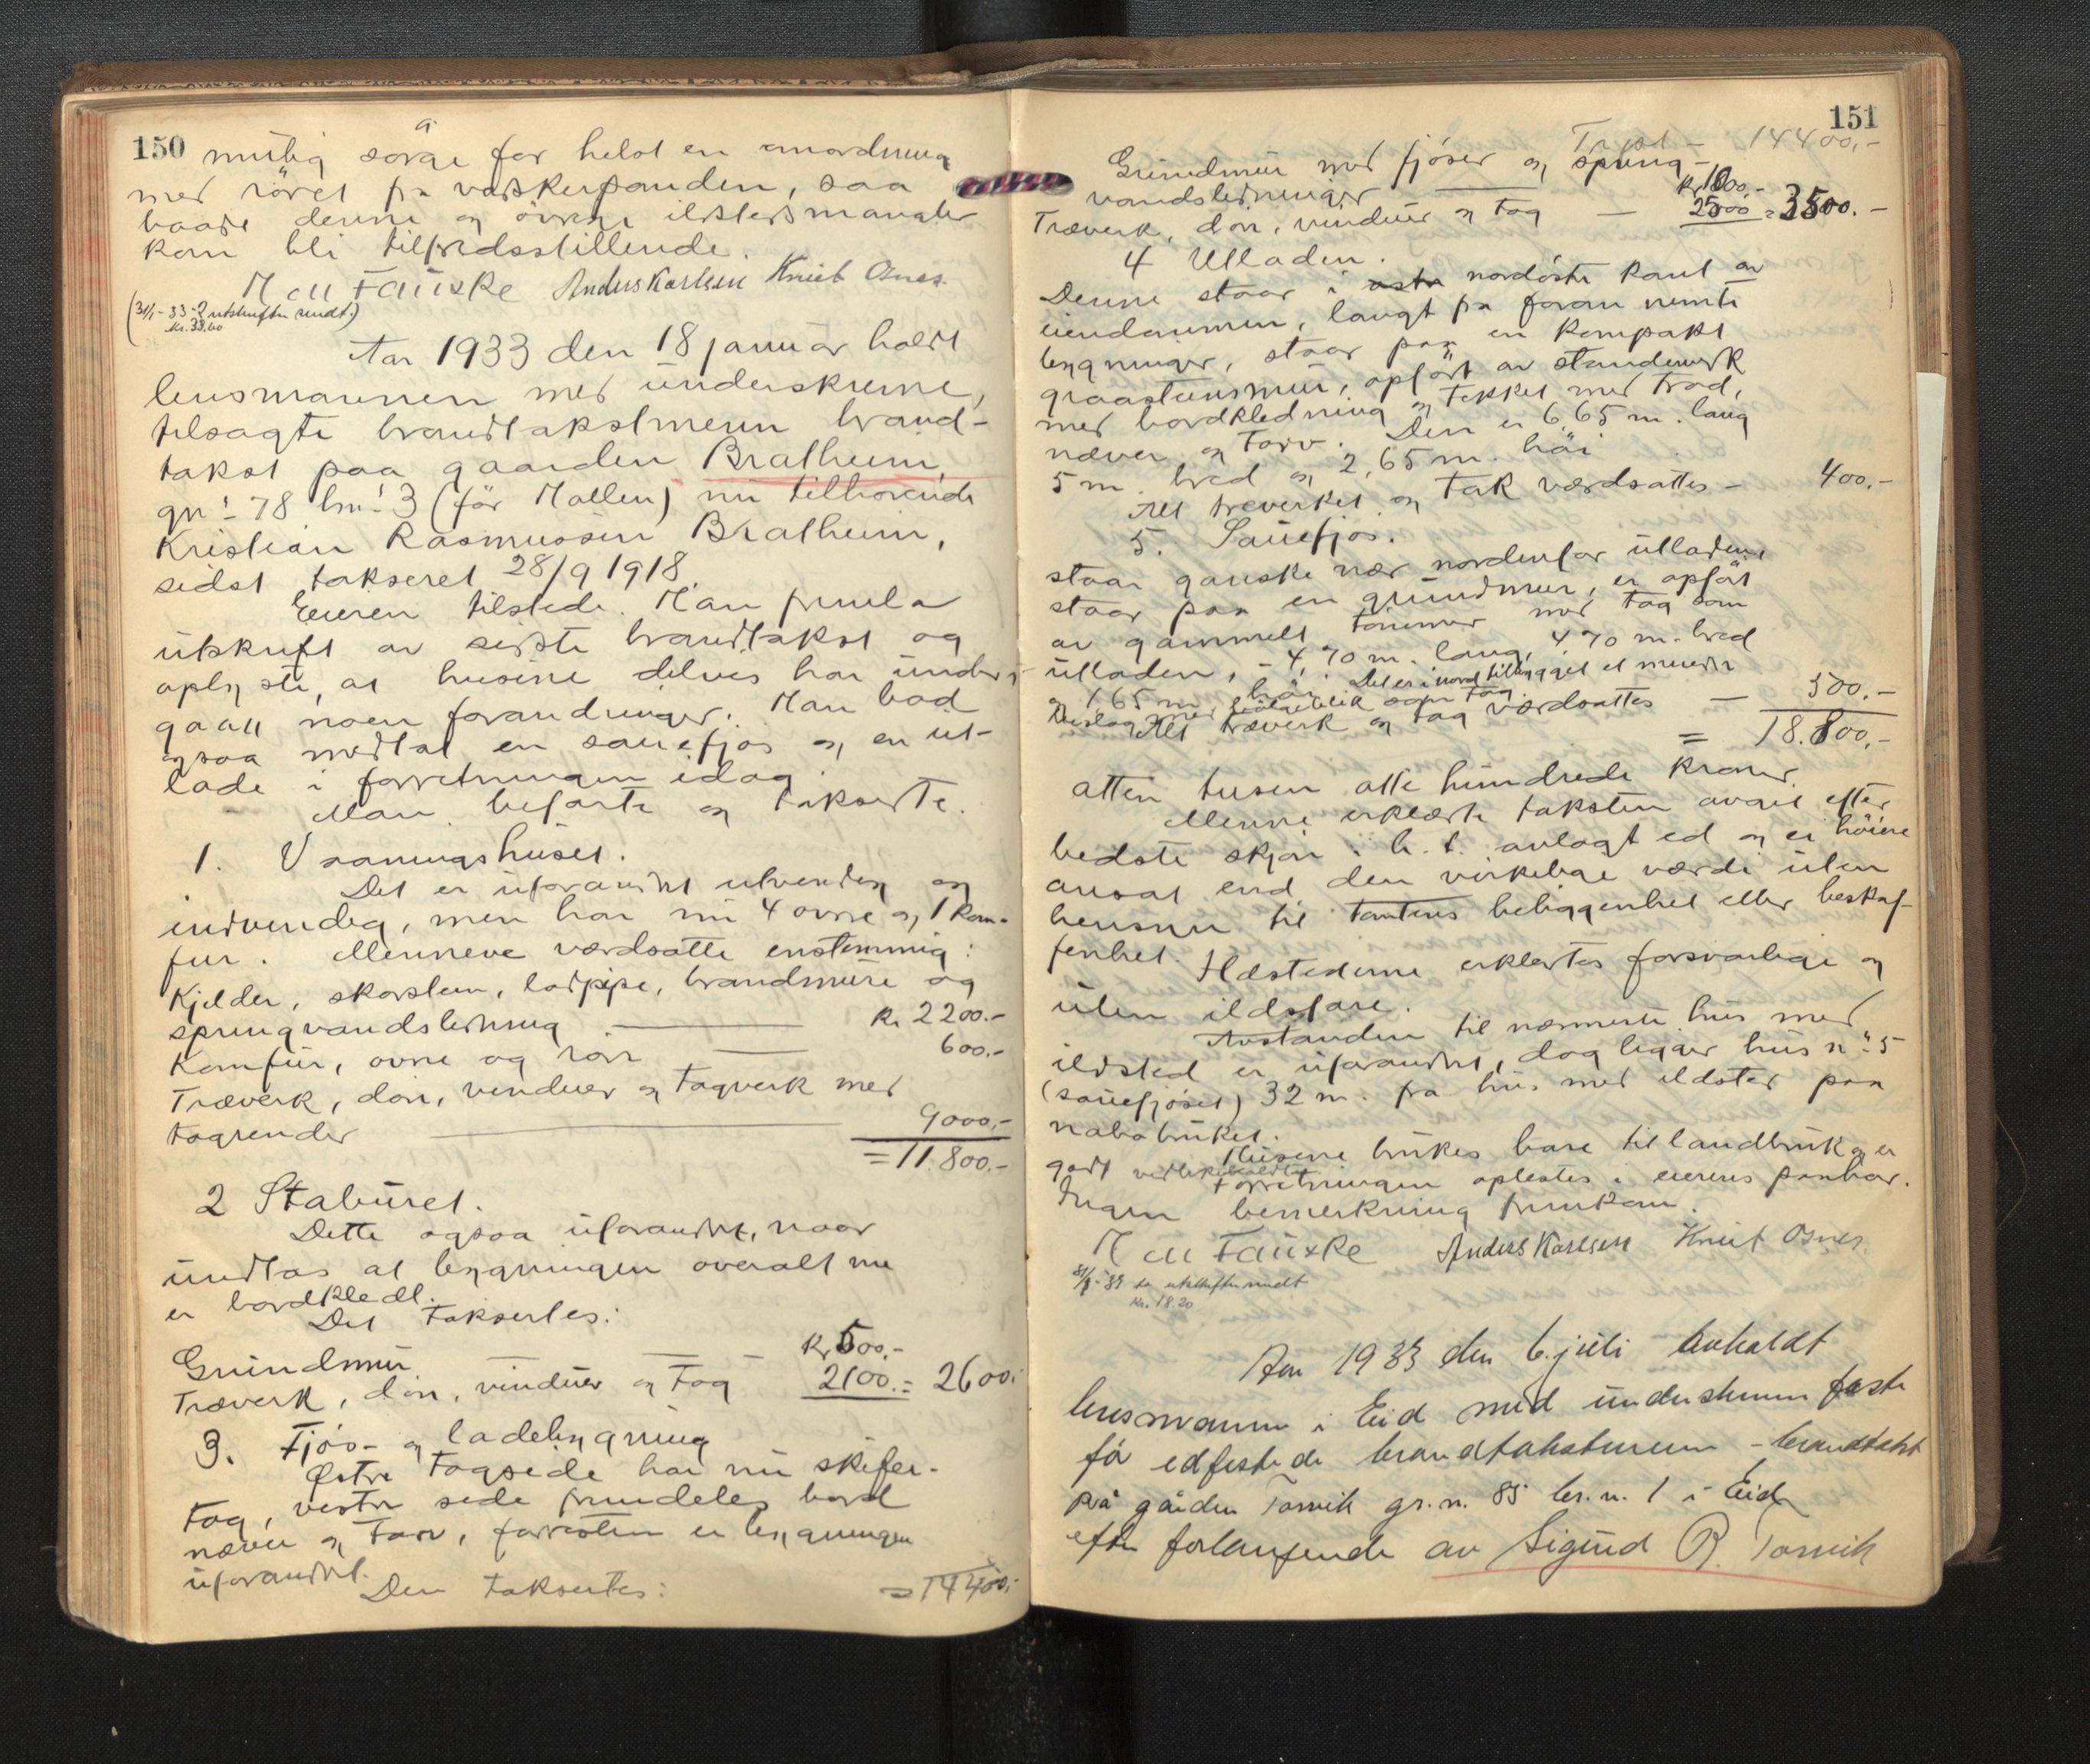 150
mulig å sørge for helst en anordning
med røret fra vaskerpanden, saa
baade denne og øvrige ildstedsmangler
kan bli tilfredsstillende.
M All Fauske Anders Karlsen Knut Osnes
(31/1-33-2 utskrifter sendt.)
Kr. 33.60
Aar 1933 den 18 januar holdt
lensmannen med underskrevne,
tilsagte brandtakstmenn brand-
takst paa gaarden Bratheim,
gn: 78 bn: 3 (før Mollen) nu tilhørende
Kristian Rasmussen Bratheim,
sidst takseret 28/9 1918.
Eieren tilstede. Man fremla
utskrift av sidste brandtakst og
oplyste, at husene delvis har under-
gaatt noen forandringer. Man bad
ogsaa medtat en sauefjøs og en ut-
lade i forretningen idag.
Man befarte og takserte.
1. Vaaningshuset.
Det er uforandret utvendig og
indvendig, men har nu 4 ovne og 1 kom-
fur. Mennene værdsatte enstemmig:
Kjelder, skorsten, lodpipe, brandmure og
springvandsledning — Kr 2200.-
Komfur, ovne og rør — 600.-
Træverk, dør, vinduer og tagverk med
tagrender — 9000,-
= 11.800.-
2 Staburet.
Dette ogsaa uforandret, naar
undtas at bygningen overalt nu
er bordkledt.
Det taksertes:
Grundmur — — - Kr 500.-
Træverk, dør, vinduer og tag 2100.- = 2600.-
3. Fjøs- og ladebygning
Østre tagside har nu skifer-
tag, vestre side fremdeles bord
næver og torv, forresten er bygningen
uforandret.
Den taksertes: = 14400.-
151
Trpt — 14400,-
Grundmur med fjøser og spring-
vandsledninger — Kr 1000.-
Træverk, dør, vinduer og tag — 2500 = 3500.-
4 Utladen.
Denne staar i østr nordøstre kant av
eiendommen, langt fra foran nemte
bygninger, staar paa en kompakt
graasteinsmur, opført av standerverk
med bordkledning og tekket med trod,
næver og torv. Den er 6,65 m. lang
5 m. bred og 2,65 m. høi
Alt treverket og tak værdsattes - 400,-
5. Sauefjøs.
staar ganske nær nordenfor utladen,
staar paa en grundmur, er opført
av gammelt tømmer med tag som
utladen, - 4,70 m. lang, 4,70 m. bred
og 1,65 m. høi. Det er i nord tilbygget et mindre
beslag med bølgeblik som tag.
Alt træverk og tag værdsattes — 500.-
= 18.800,-
atten tusen otte hundrede kroner
Menne erklærte taksten avgit efter
bedste skjøn i h. t. avlagt ed og ei høiere
ansat end den virkelige værdi uten
hensyn til tomtens beliggenhet eller beskaf-
fenhet. Ildstederne erklertes forsvarlige og
uten ildsfare.
Avstanden til nærmeste hus med
ildsted er uforandret, dog ligger hus n: 5
(sauefjøset) 32 m. fra hus med ildsted paa
nabobruket.
Husene brukes bare til landbruk og er
godt vedlikeholdte.
Forretningen oplestes i eierens paahør.
Ingen bemerkning fremkom.
M All Fauske Anders Karlsen Knut Osnes
31/1-33 to utskrifter sendt
Kr. 18.20
Aar 1933 den 6. juli avholdt
lensmannen i Eid med understemn faste
før edfestede brandtakstmenn - brandtakst
på gården Torvik gr.n. 85 br.n. 1 i Eid
efter forlangende av Sigurd R. Torvik